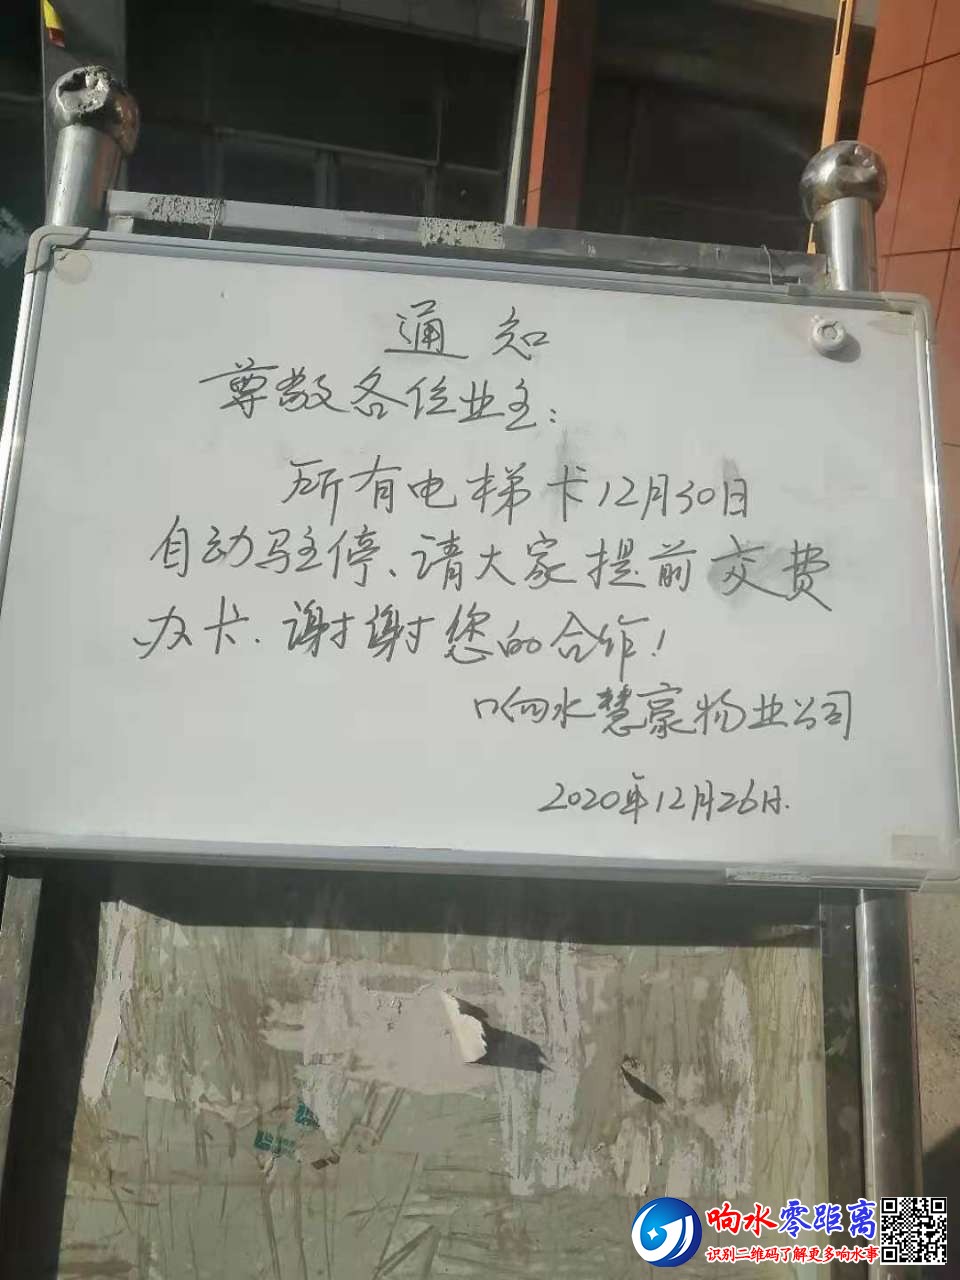 通知
尊敬各位业主：
所有电梯卡12月30日
自动驻停、请大家提前交费
办卡.谢谢您的合作！
响水慧豪物业公司
2020年12月26日.
响水零距离
识别二维码了解更多响水事